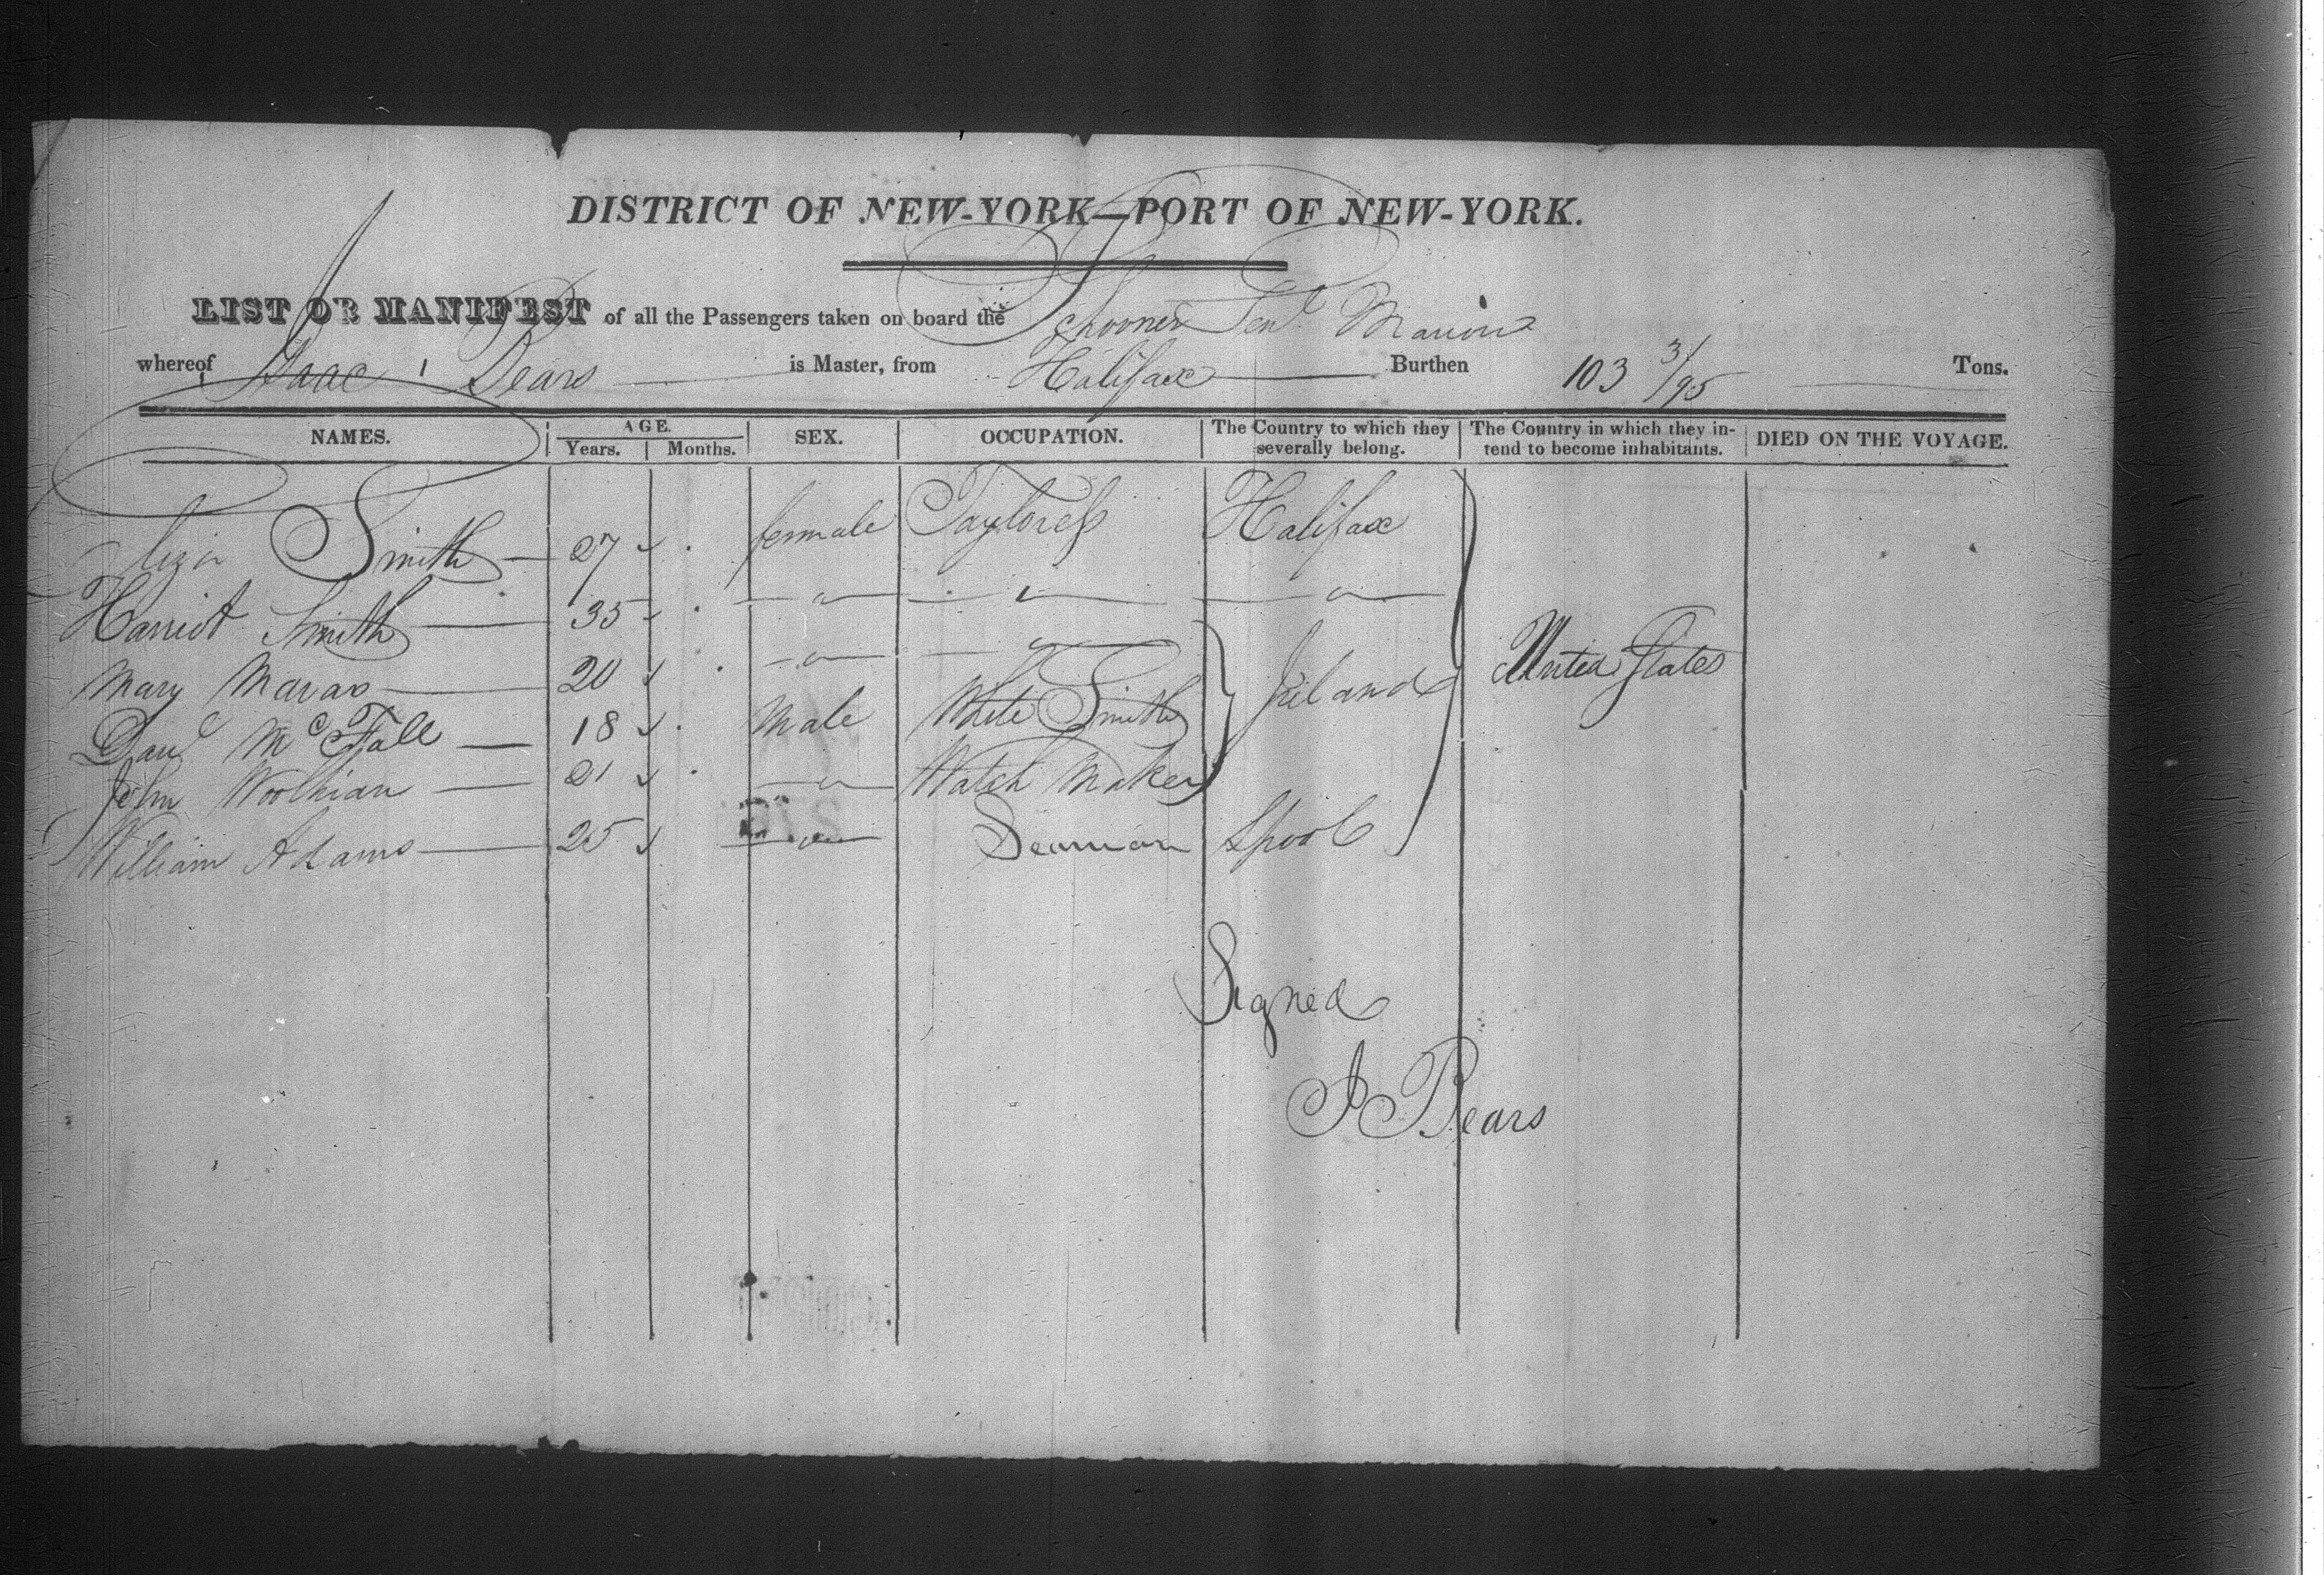 DISTRICT OF NEW-YORK—PORT OF NEW-YORK.
LIST OR MANIFEST of all the Passengers taken on board the Schooner Genl Marion
whereof Isaac Pears is Master, from Halifax Burthen 103 3/95 Tons.
NAMES. AGE. Years. Months. SEX. OCCUPATION. The Country to which they severally belong. The Country in which they intend to become inhabitants. DIED ON THE VOYAGE.
Eliza Smith 27 female Tayloress Halifax
Harriot Smith 35 " " "
Mary 20 " "
Danl McFall 18 Male White Smith Ireland United States
John 21 " Watch Maker
William Adams 25 " Seaman Lpool
Signed
I Pears